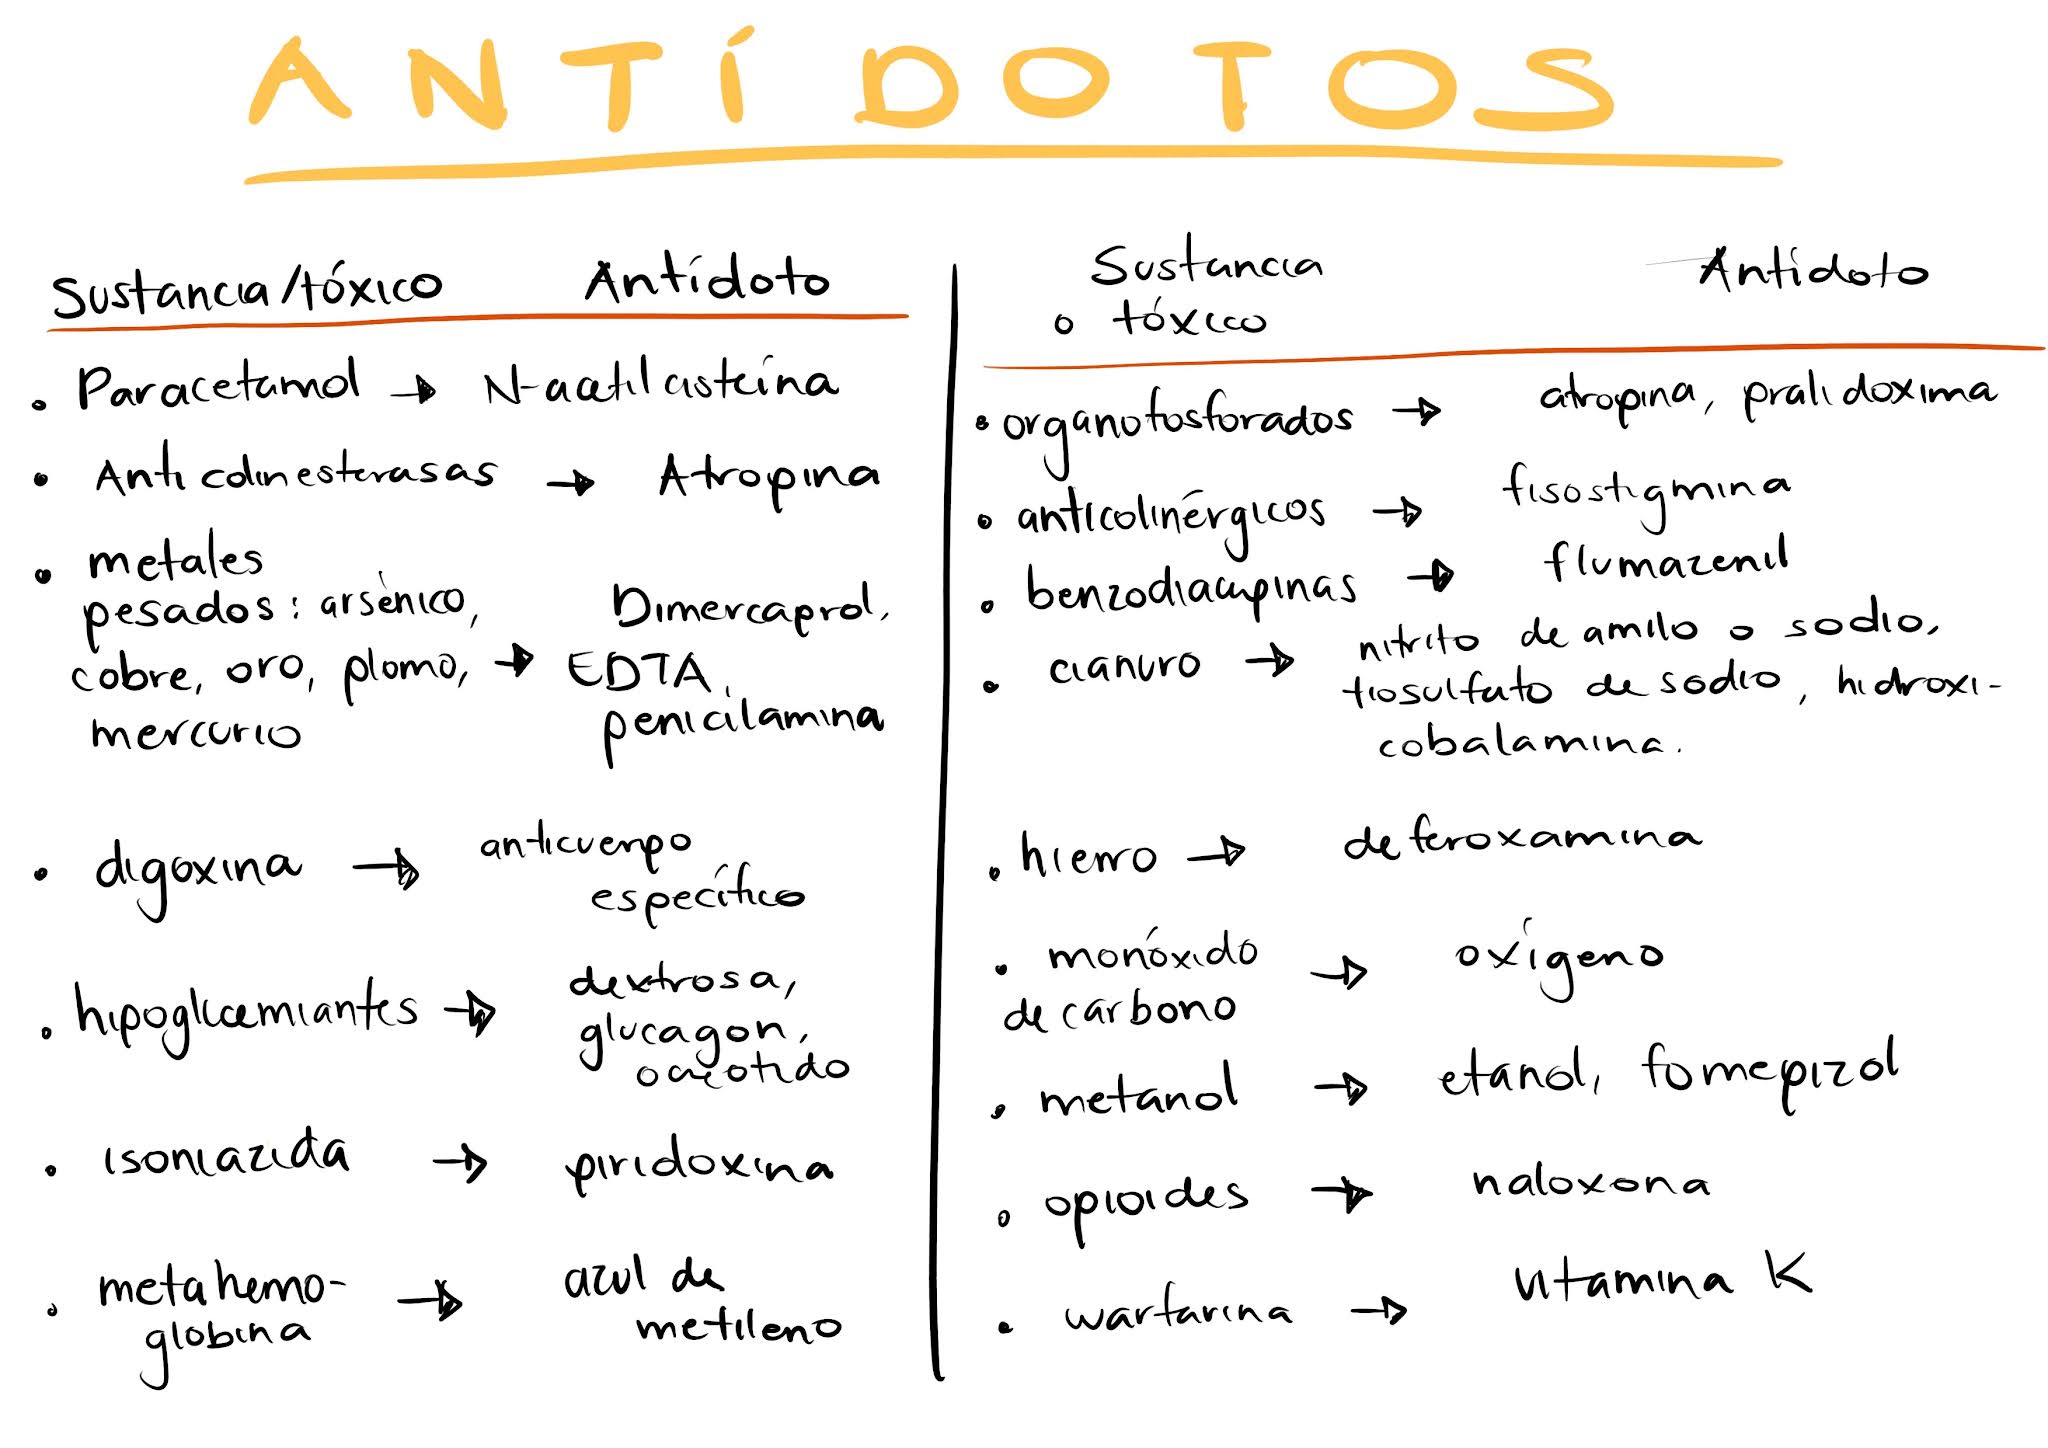 ANTÍDOTOS
Sustancia/tóxico Antídoto
• Paracetamol → N-acetilcisteína
• Anticolinesterasas → Atropina
• metales
pesados: arsénico, Dimercaprol,
cobre, oro, plomo, → EDTA,
mercurio penicilamina
• digoxina → anticuerpo
específico
• hipoglicemiantes → dextrosa,
glucagon,
ocreotido
• isoniazida → piridoxina
• metahemo- → azul de
globina metileno
Sustancia Antídoto
o tóxico
• organofosforados → atropina, pralidoxima
• anticolinérgicos → fisostigmina
• benzodiacepinas → flumazenil
• cianuro → nitrito de amilo o sodio,
tiosulfato de sodio, hidroxi-
cobalamina.
• hierro → deferoxamina
• monóxido → oxígeno
de carbono
• metanol → etanol, fomepizol
• opioides → naloxona
• warfarina → vitamina K